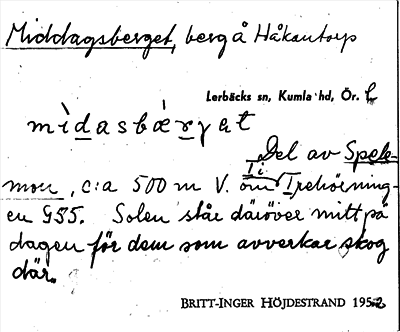 Middagsberget, berg å Håkantorp
Lerbäcks sn, Kumla hd, Ör. l.
mìdasbær̀yet
Del av Spele-
mon, c:a 500 m V. om Trehörning-
en 985. Solen står däröver mitt på
dagen för dem som avverkar skog
där.
BRITT-INGER HÖJDESTRAND 1952